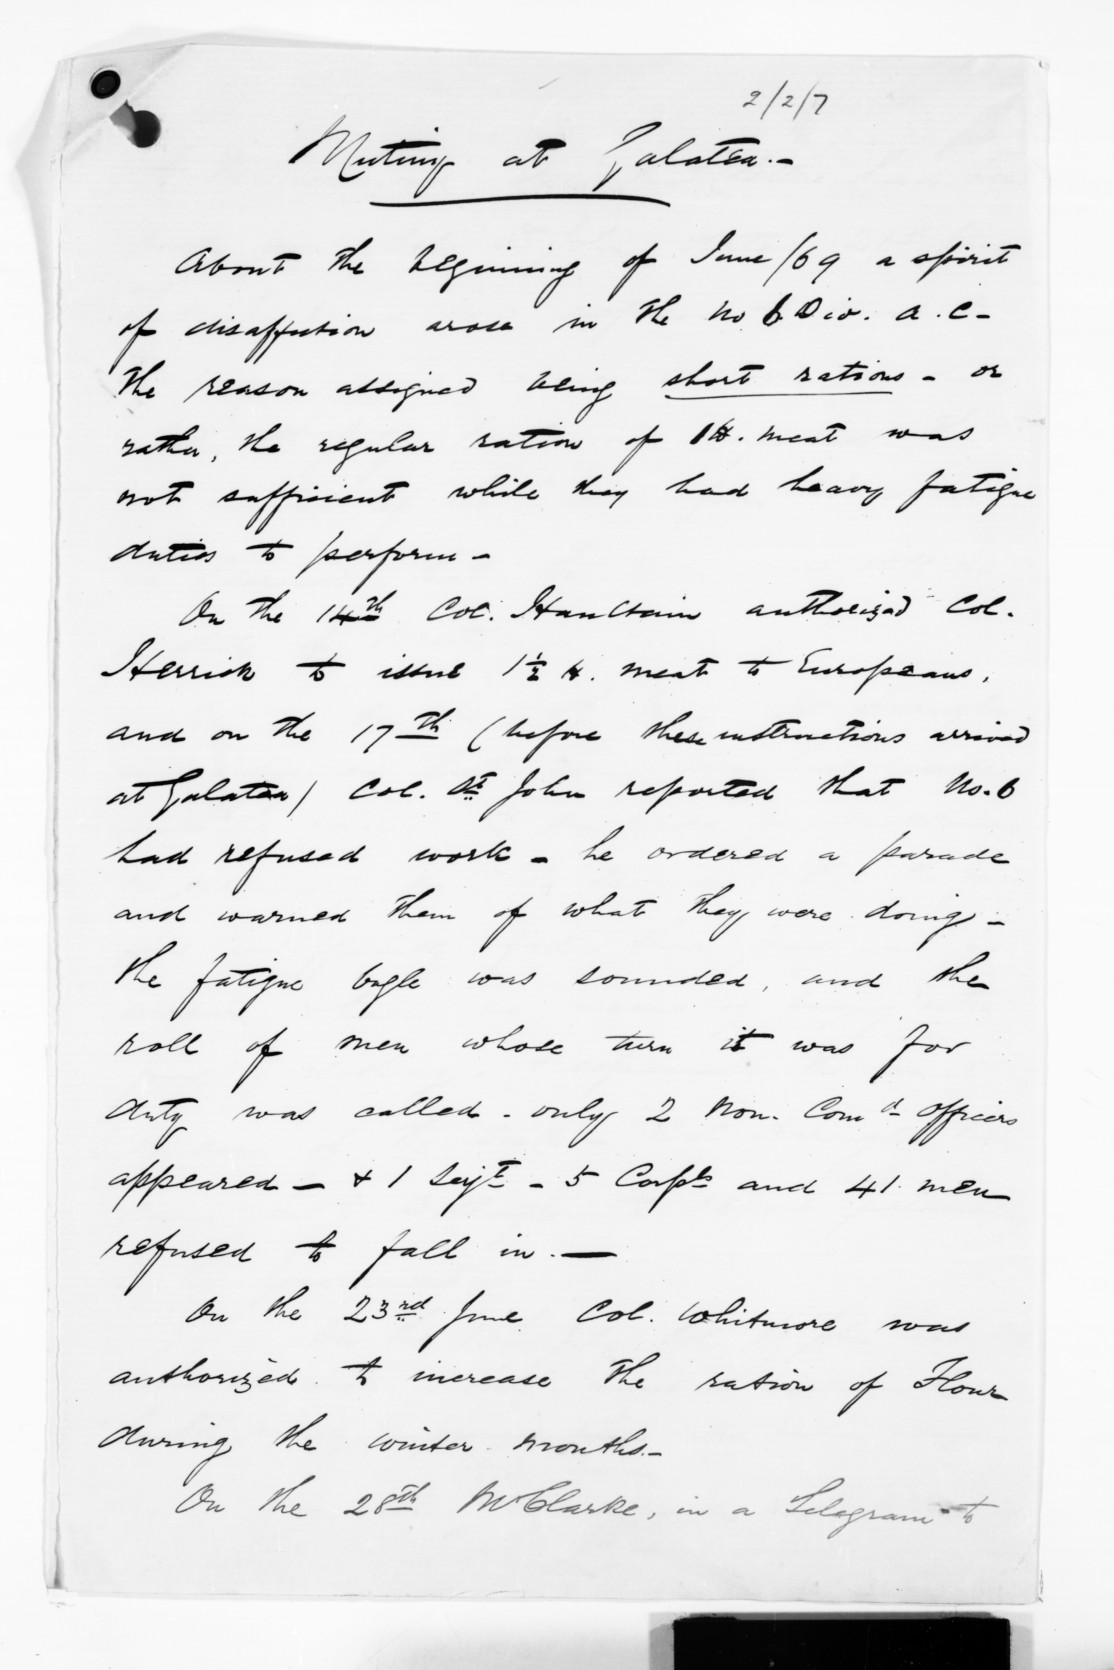 2/2/7
Mutiny at Galatea.-
About the beginning of June /69 a spirit
of disaffection arose in the No 6 Div. A.C-
the reason assigned being short rations - or
rather, the regular ration of 1 lb. meat was
not sufficient while they had heavy fatigue
duties to perform -
On the 14th Col. Haultain authorized Col.
Herrick to issue 1½ lb. meat to Europeans,
and on the 17th (before these instructions arrived
at Galatea) Col. St John reported that No. 6
had refused work - he ordered a parade
and warned them of what they were doing -
the fatigue bugle was sounded, and the
roll of men whose turn it was for
duty was called - only 2 Non. Comd Officers
appeared - & 1 Sergt - 5 Corpls and 41 men
refused to fall in. -
On the 23rd June Col. Whitmore was
authorized to increase the ration of Flour
during the winter months.-
On the 28th Mr Clarke, in a Telegram to